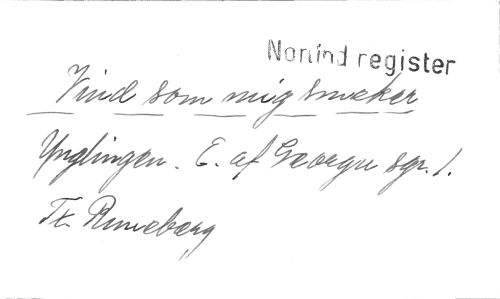 Nonind register
Vind som mig smeker
Ynglingen. E. af Georgii sgr. 1.
Tx. Runeberg